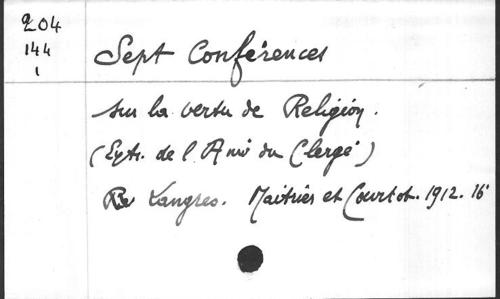 204
144
1
Sept Conférences
sur la vertu de Religion.
(Extr. de l'Ami du Clergé)
Langres. Maitrier et Courtot. 1912. 16°